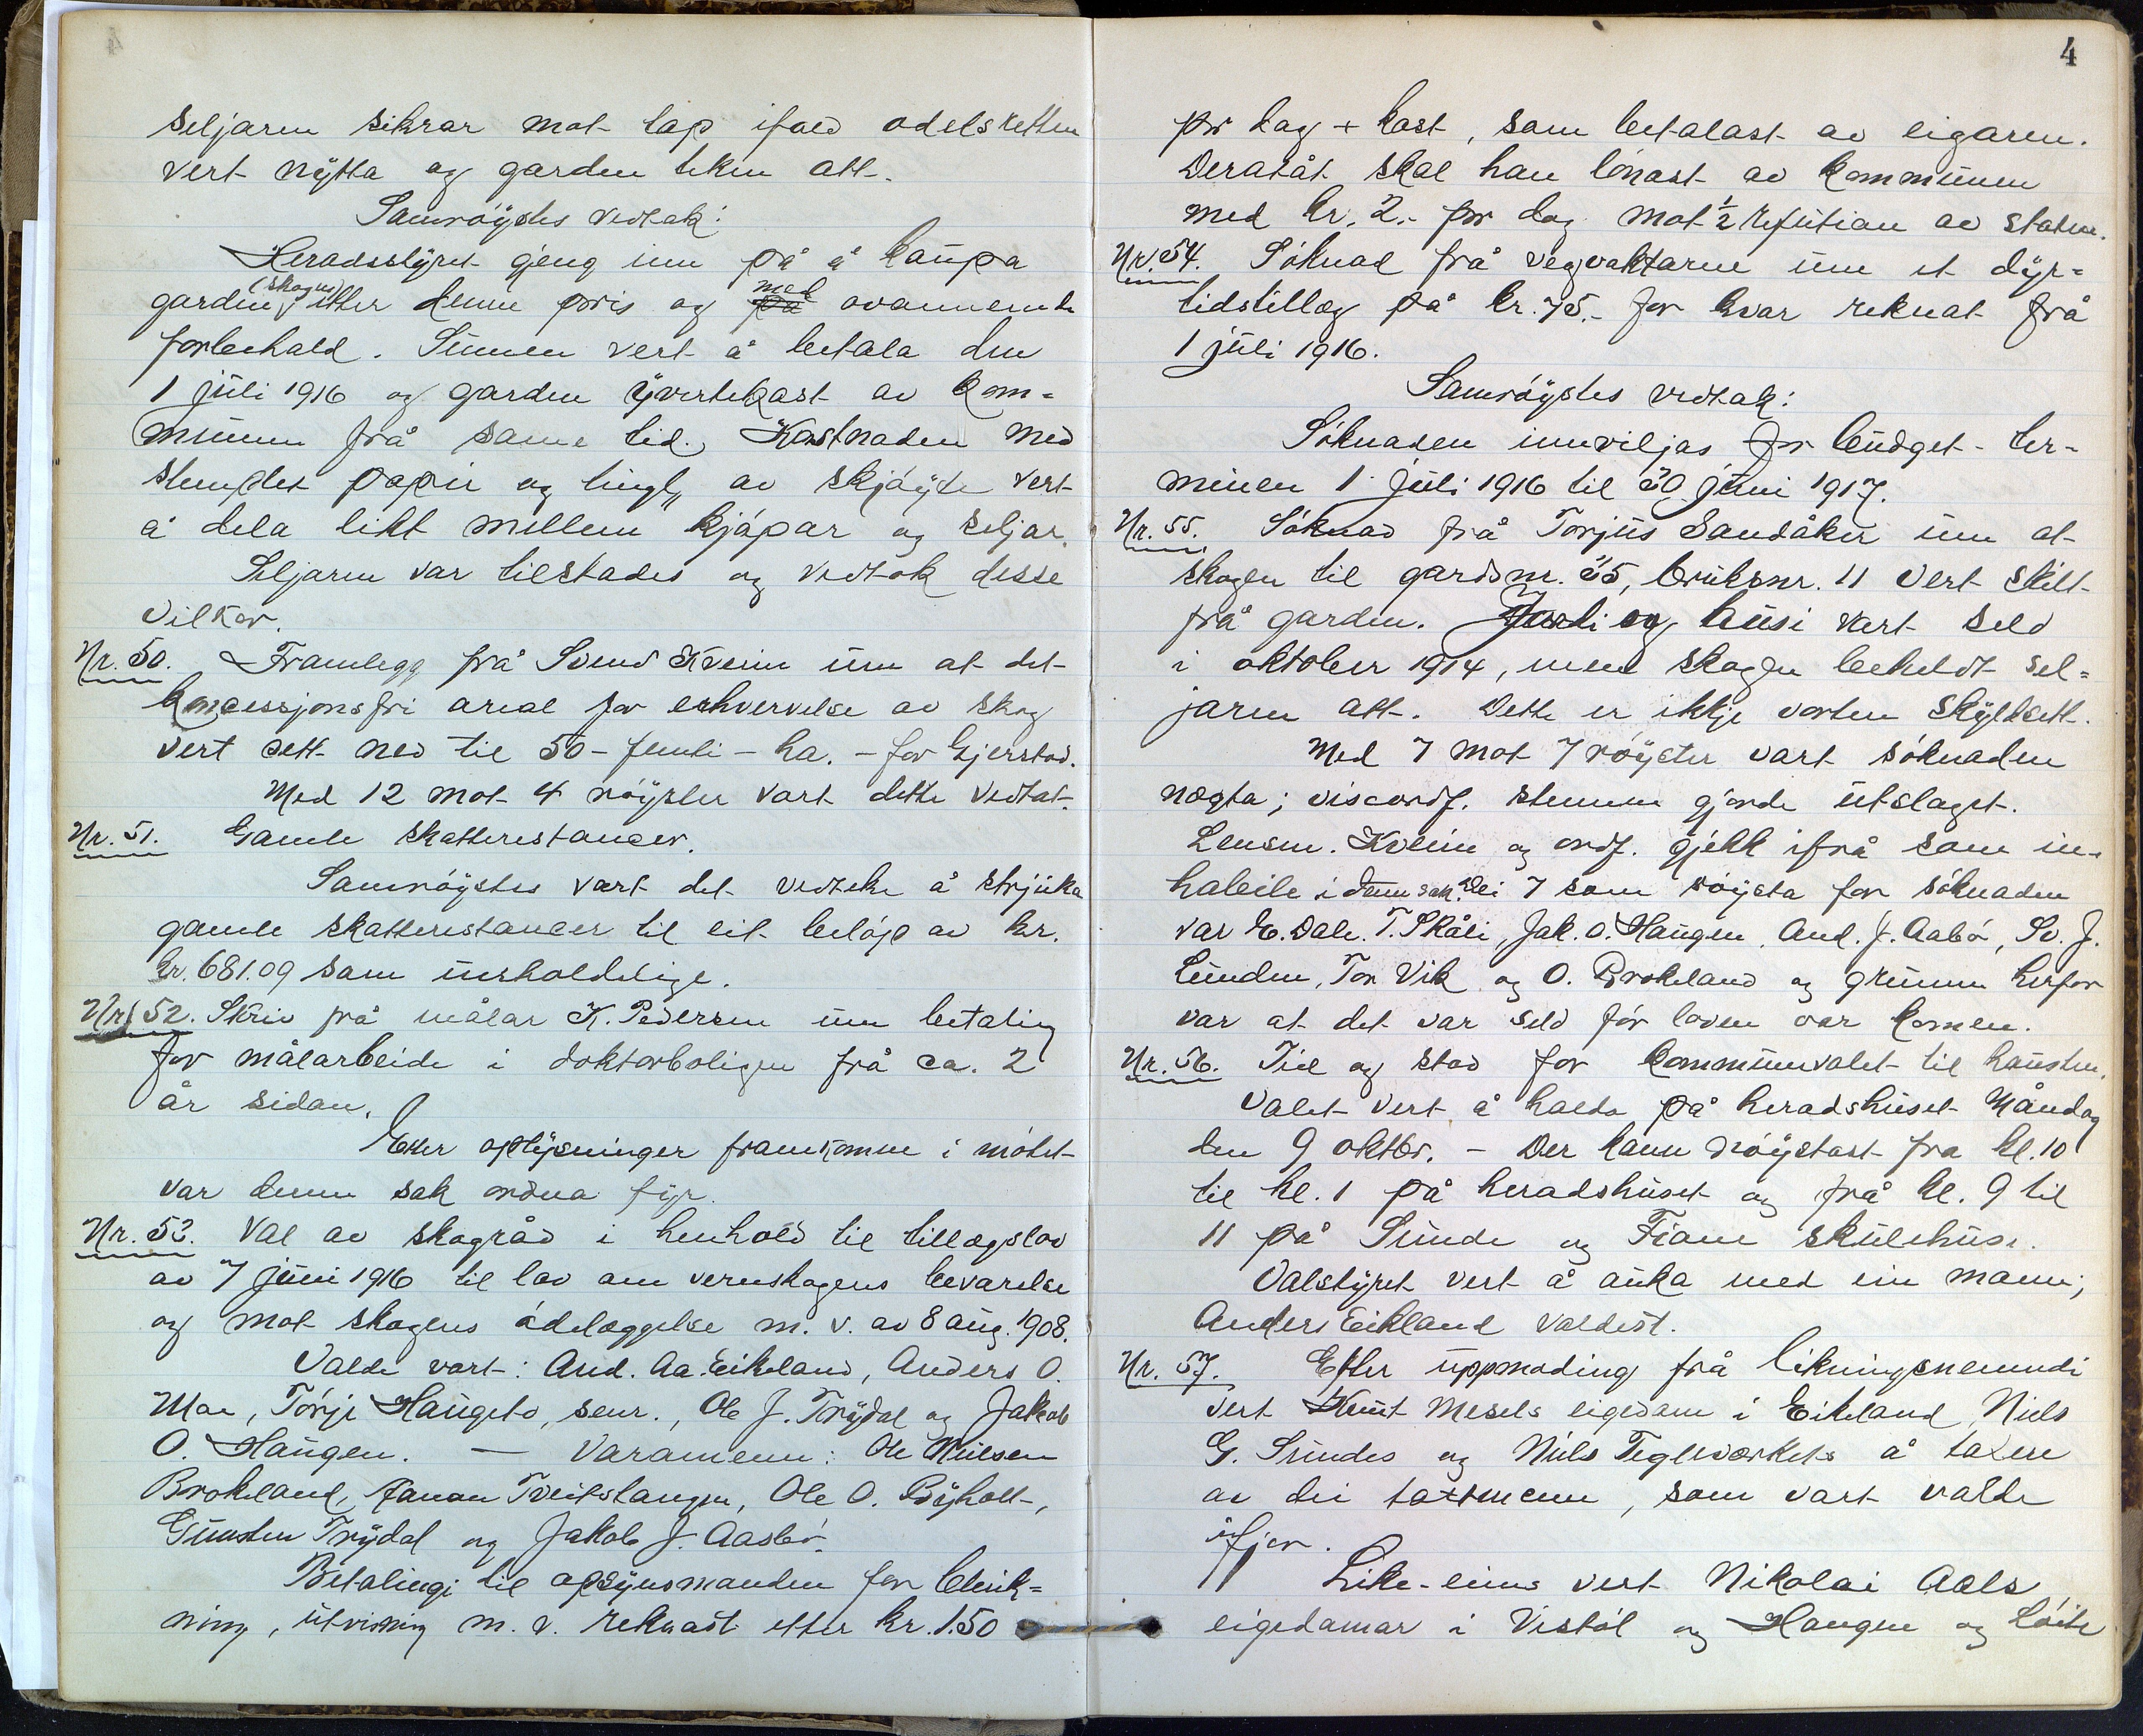 seljaren sikrar mot tap ifald odelsretten
vert nytta og garden teken att.
Samrøystes vedtak:
Heradsstyret gjeng inn på å kaupa
garden (skogen) etter denne pris og på med ovannemnte
forbehald. Summen vert å betala den
1 juli 1916 og garden yvertekast av kom=
munen frå same tid. Kostnaden med
stemplet papir og tingl. av skjøyte vert
å dela likt millem kjøpar og seljar.
Seljaren var tilstades og vedtok disse
vilkor.
Nr. 50. Framlegg frå Svend Kveim um at det
koncessjonsfri areal for erhvervelse av skog
vert sett ned til 50 - femti - ha. - for Gjerstad.
Med 12 mot 4 røyster vart dette vedtat.
Nr. 51. Gamle skatterestancer.
Samrøystes vart det vedteke å strjuka
gamle skatterestancer til eit beløp av kr.
kr. 681.09 som uerholdelige.
Nr. 52. Skriv frå målar K. Pedersen um betaling
for målarbeide i doktorboligen frå ca. 2
år sidan.
Etter oplysninger framkomne i møtet
var denne sak ordna fyr.
Nr. 53. Val av skogråd i henhold til tillægslov
av 7 juni 1916 til lov om vernskogens bevarelse
og mot skogens ødelæggelse m. v. av 8 aug. 1908.
Valde vart: And. Aa. Eikeland, Anders O.
Moe, Tørje Haugeto, senr., Ole J. Trydal og Jakob
O. Haugen. — Varamenn: Ole Nilsen
Brokeland, Tveitslangen, Ole O. Røyholt,
Gunsten Trydal og Jakob J. Aasbø.
Betalingi til opsynsmanden for blink=
ning, utvisning m. v. reknast etter kr. 1.50
4
pr dag + kost, som betalast av eigaren.
Deratåt skal han lønast av kommunen
med kr. 2.- pr dag mot 1/2 refution av staten.
Nr. 54. Søknad frå vegvaktarne um et dyr=
tidstillæg på kr. 75.- for kvar reknat frå
1 juli 1916.
Samrøystes vedtak:
Søknaden innviljas for budget-ter-
minen 1 juli 1916 til 30 juni 1917.
Nr. 55. Søknad frå Torjus Sandåker um at
skogen til gardsnr. 35, bruksnr. 11 vert skilt
frå garden. Jordi og husi vart seld
i oktober 1914, med skogen beheldt sel=
jaren att. Dette er ikkje vorten skyldsett.
Med 7 mot 7 røyster vart søknaden
nægta; viseordf. stemme gjorde utslaget.
Lensm. Kveim og ordf. gjekk ifrå som in-
habile i denne sak. Dei 7 som røysta for søknaden
var E. Dale. T. Skåli, Jak. O. Haugen, And. J. Aabø, Sv. J.
Lunden, Tor Vik og O. Brokeland og grunnen herfor
var at det var seld før loven var komen.
Nr. 56. Tid og stad for kommunevalet til hausten.
Valet vert å halda på heradshuset Måndag
den 9 oktbr. - Der kann røystast fra kl. 10
til kl. 1 på heradshuset og frå kl. 9 til
11 på Sunde og Fiane skulehuse.
Valstyret vert å auka med ein mann;
Anders Eikland valdest.
Nr. 57. Etter uppmoding frå likningsnemndi
vert Knut Mesels eigedom i Eikeland, Niels
G. Sundes og Niels Teglverkets å taxere
av dei taxtmenn, som vart valde
ifjor.
Like-eins vert Nikolai Aals
eigedomar i Vestøl og Haugen og Løite